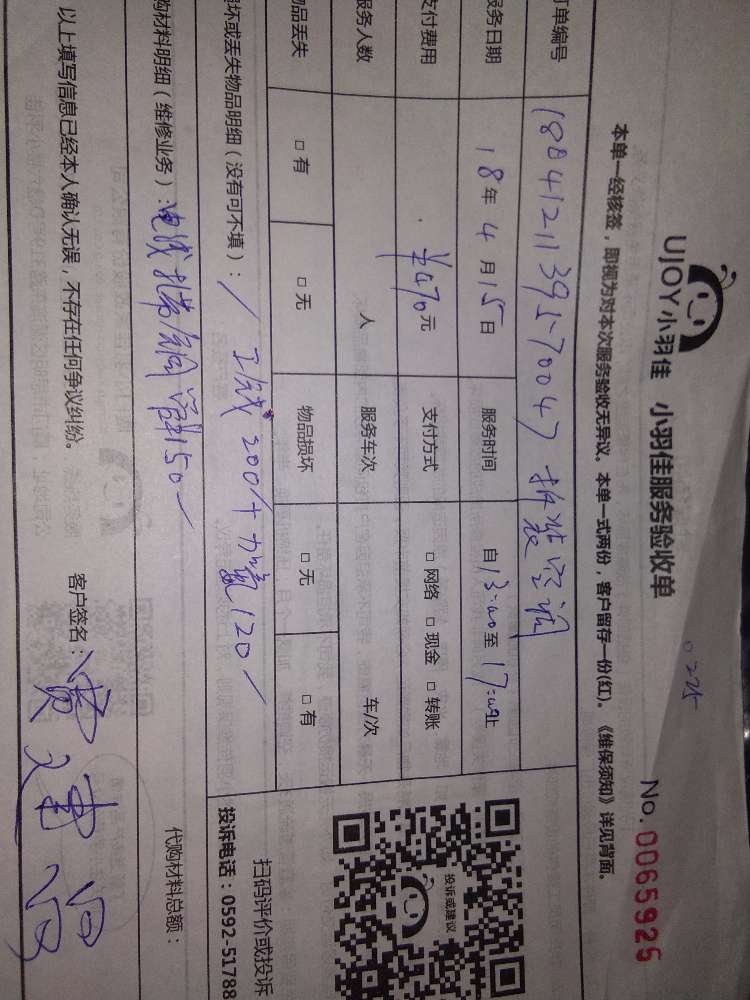 UJOY小羽佳 小羽佳服务验收单
No. 0065925
本单一经核签，即视为对本次服务验收无异议。本单一式两份，客户留存一份(红)。《维保须知》详见背面。
订单编号 18041211395170047 拆装空调
服务日期 18年4月15日 服务时间 自13:00至17:00止
支付费用 ¥470元 支付方式 □网络 □现金 □转账
服务人数 人 服务车次 车/次
物品丢失 □有 □无 物品损坏 □无 □有
损坏或丢失物品明细（没有可不填）： / 工钱200 + 加氟120
购材料明细（维修业务）：电线扎带铜管150
代购材料总额：
以上填写信息已经本人确认无误，不存在任何争议纠纷。
客户签名：
投诉或建议
扫码评价或投诉
投诉电话：0592-51788